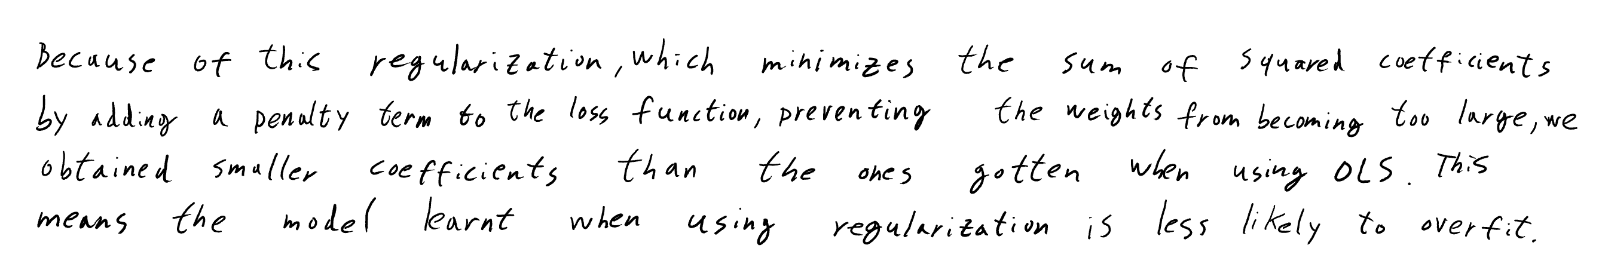 Because of this regularization, which minimizes the sum of squared coefficients
by adding a penalty term to the loss function, preventing the weights from becoming too large, we
obtained smaller coefficients than the ones gotten when using OLS. This
means the model learnt when using regularization is less likely to overfit.